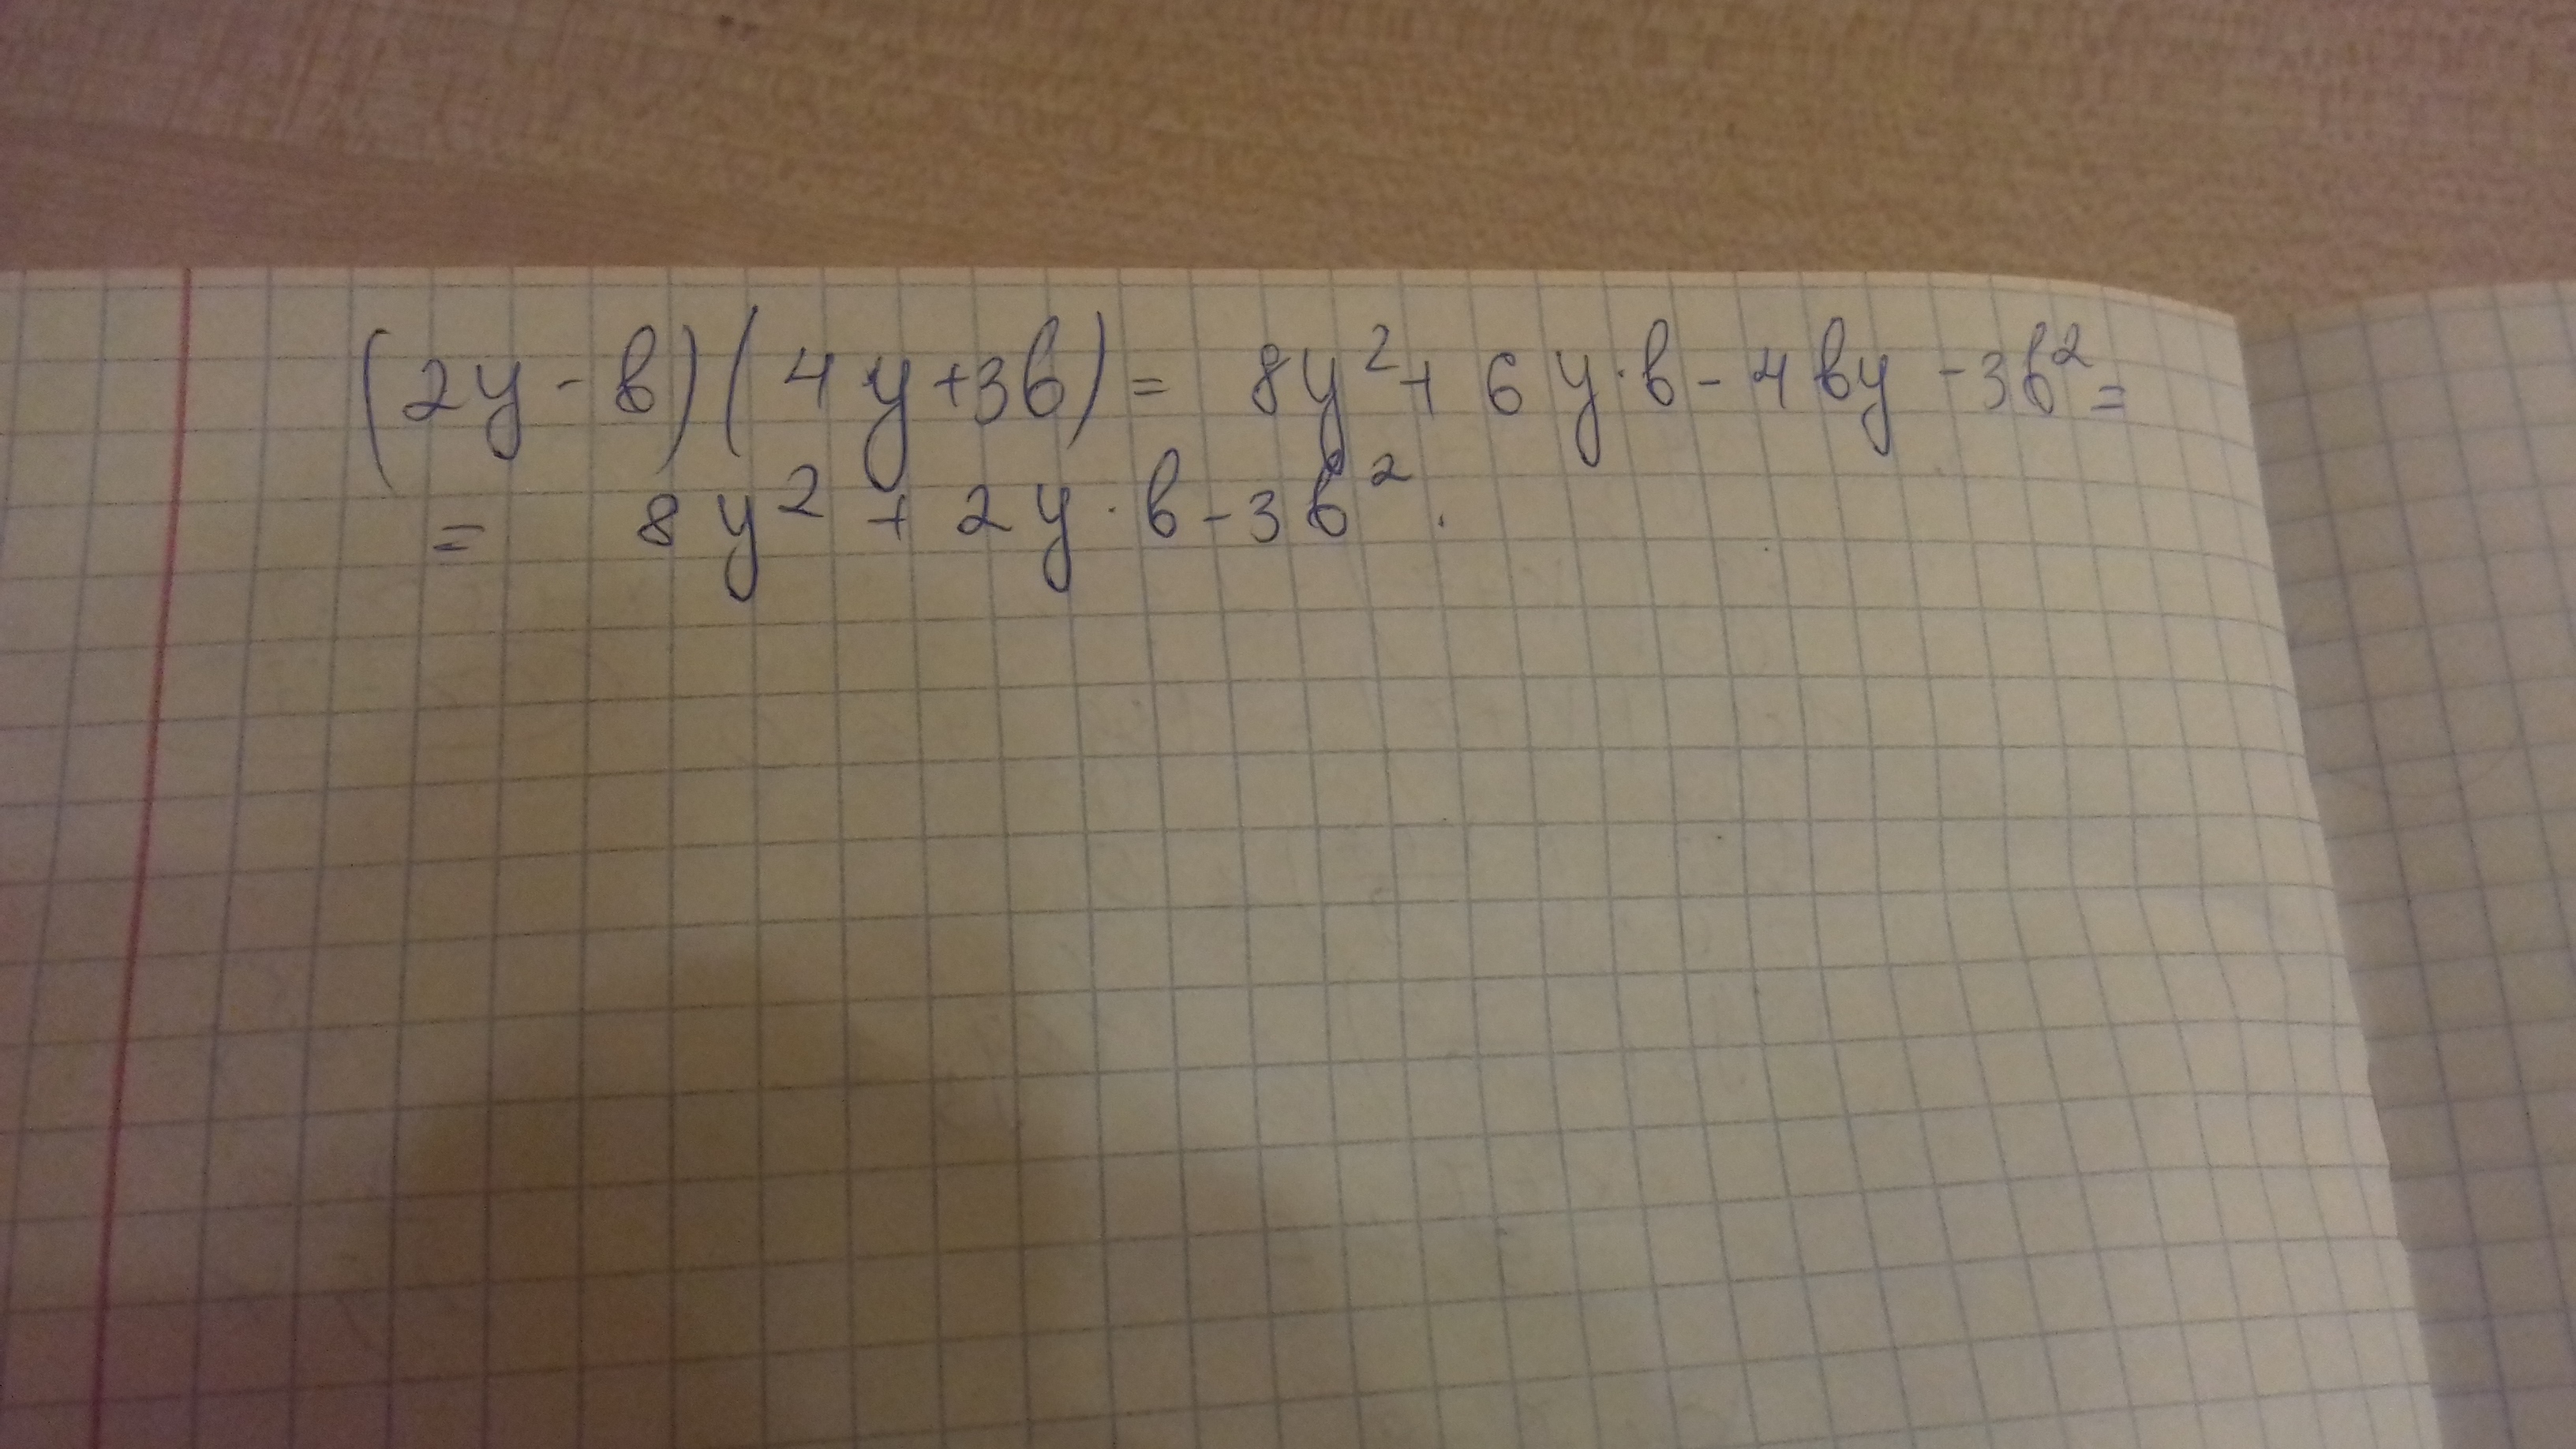 (2y - b)(4y+3b) = 8y²+ 6y·b - 4by - 3b² =
= 8y² + 2y·b - 3b².